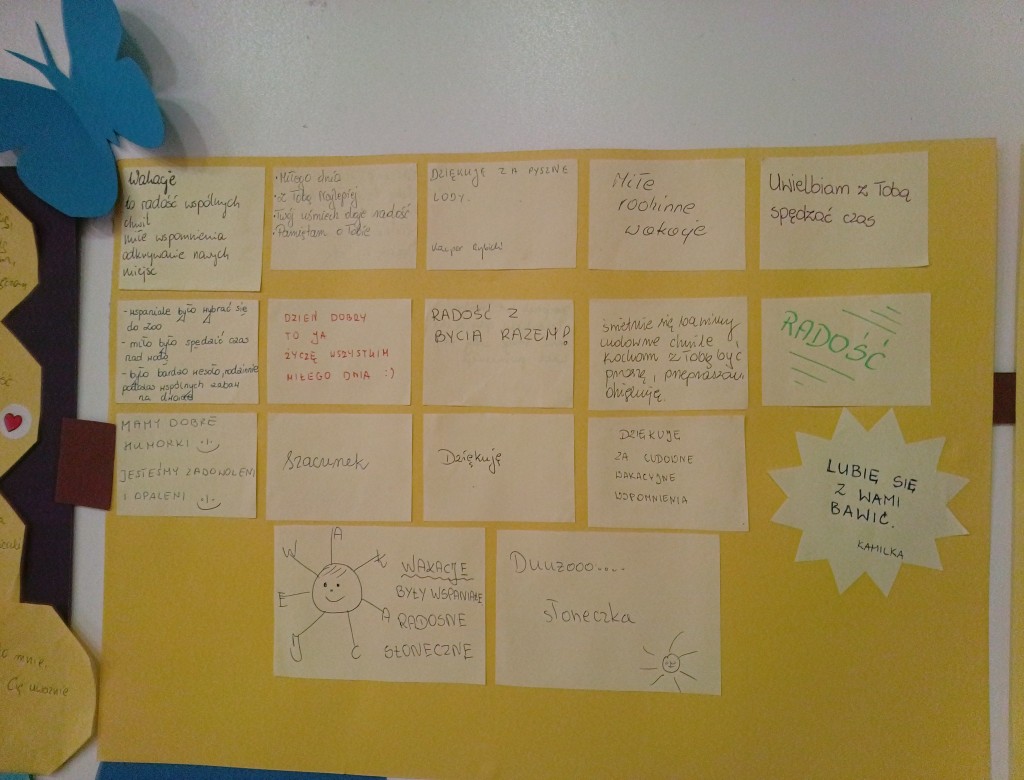 Wakacje
to radość wspólnych
chwil
miłe wspomnienia
odkrywanie nowych
miejsc
• Miłego dnia
• Z Tobą Najlepiej
• Twój uśmiech daje radość
• Pamiętam o Tobie
DZIĘKUJĘ ZA PYSZNE
LODY.
Kacper
Miłe
rodzinne
wakacje
Uwielbiam z Tobą
spędzać czas
- wspaniale było wybrać się
do zoo
- miło było spędzić czas
nad wodą
- było bardzo wesoło, rodzinnie
podczas wspólnych zabaw
na dworze
DZIEŃ DOBRY
TO JA
ŻYCZĘ WSZYSTKIM
MIŁEGO DNIA :)
RADOŚĆ Z
BYCIA RAZEM!
śmiesznie się bawimy
cudowne chwile,
kocham z Tobą być
proszę, przepraszam,
dziękuję.
RADOŚĆ
MAMY DOBRE
HUMORKI
JESTEŚMY ZADOWOLENI
I OPALENI
Szacunek
Dziękuję
DZIĘKUJĘ
ZA CUDOWNE
WAKACYJNE
WSPOMNIENIA
LUBIĘ SIĘ
Z WAMI
BAWIĆ.
KAMILKA
W A K A C J E
WAKACJE
BYŁY WSPANIAŁE
RADOSNE
SŁONECZNE
Duuzooo....
słoneczka
mnie.
Cię uważnie